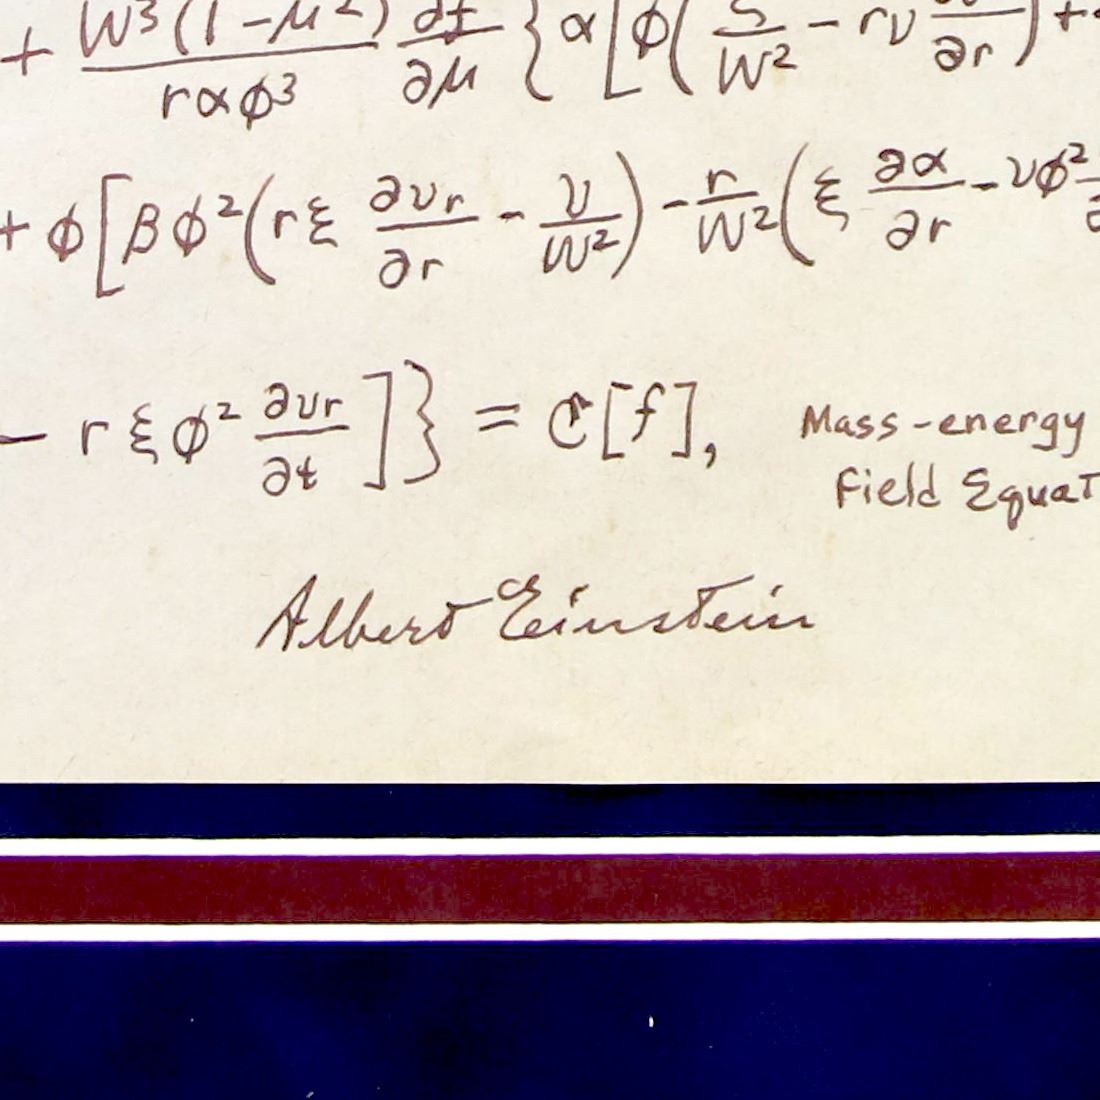 + W³(1-μ²)/rαφ³ ∂f/∂μ { α[φ( /W² - rν /∂r) +
+ φ[βφ²(rξ ∂νr/∂r - ν/W²) - r/W²(ξ ∂α/∂r - νφ²
- rξφ² ∂νr/∂t]} = C[f],
Mass-energy
Field Equat
Albert Einstein